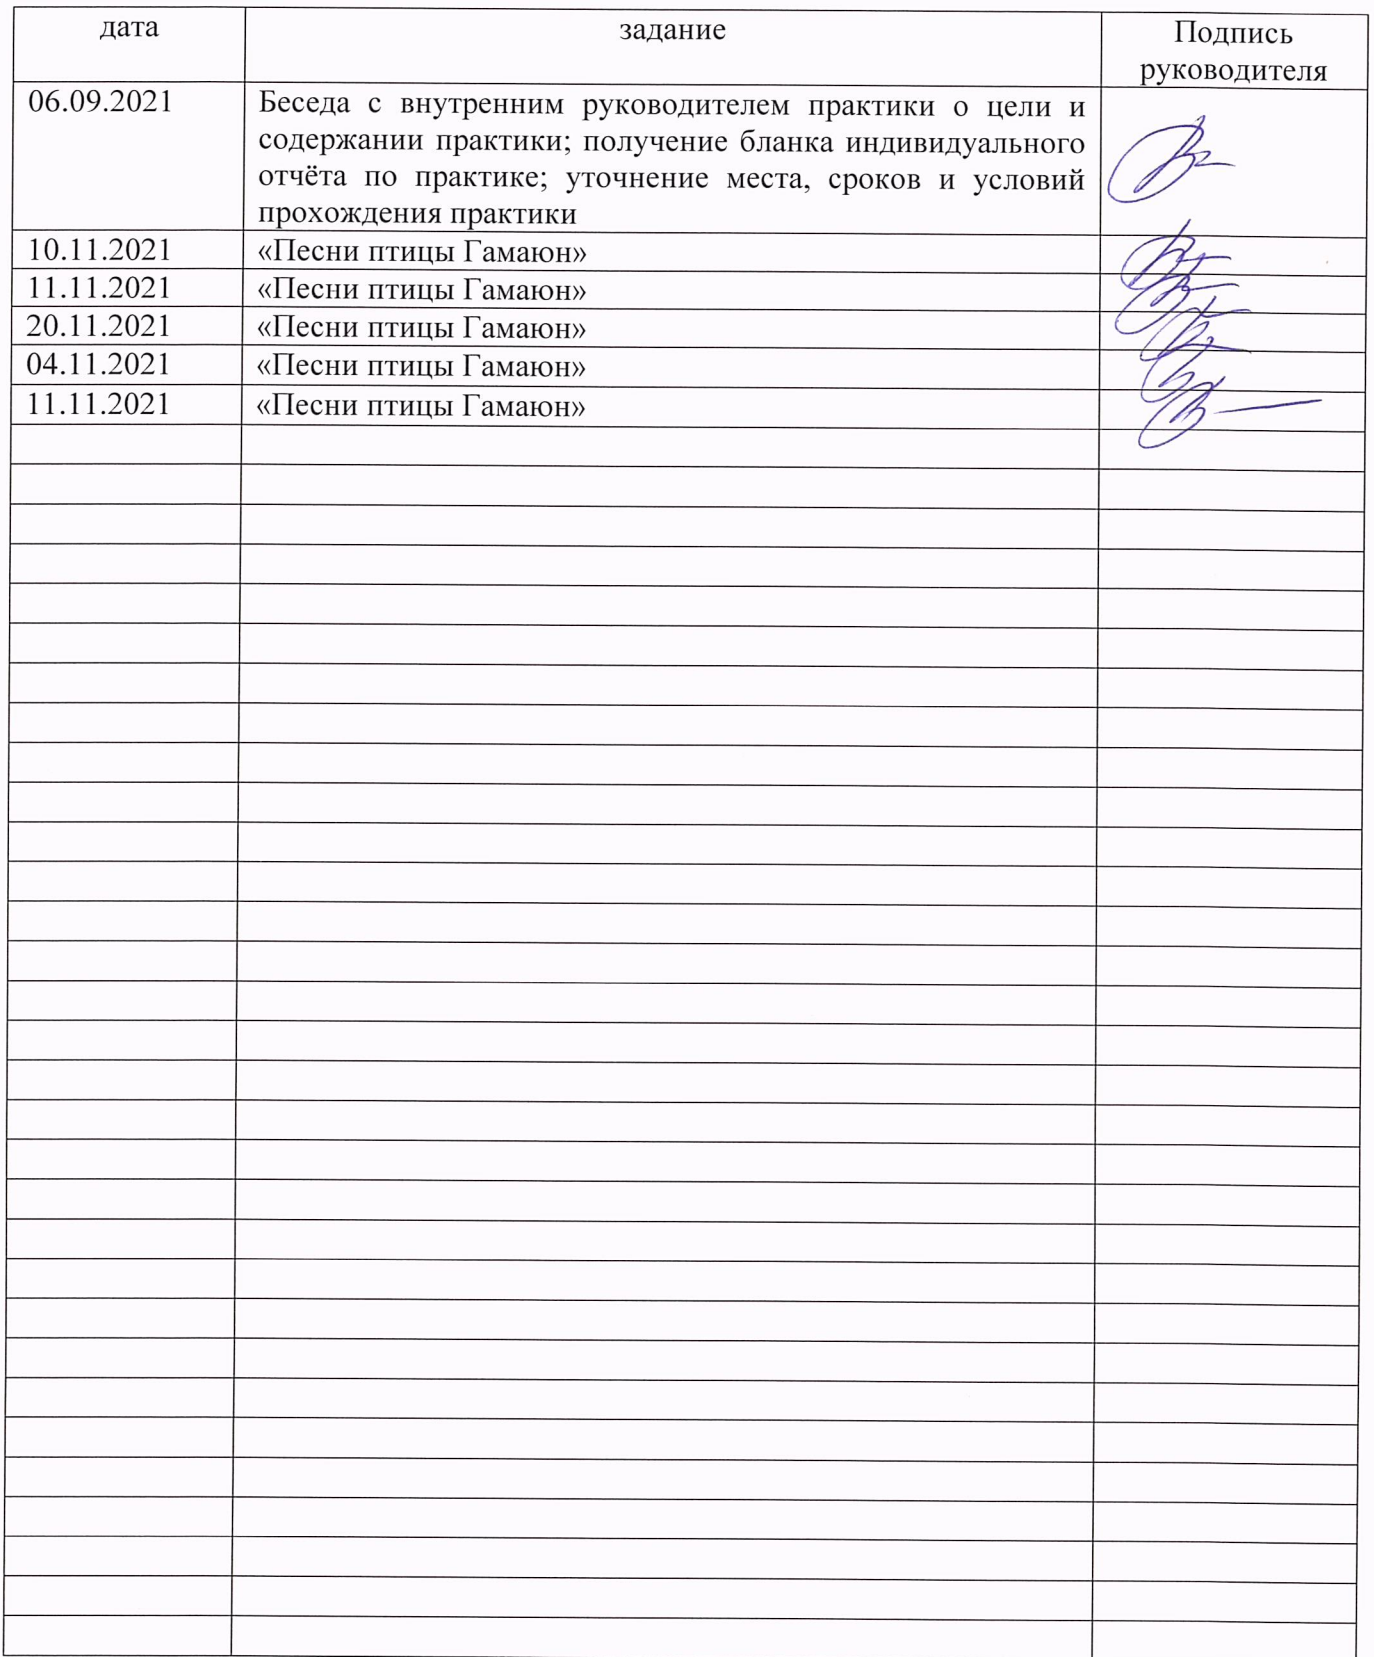 дата
задание
Подпись
руководителя
06.09.2021
Беседа с внутренним руководителем практики о цели и
содержании практики; получение бланка индивидуального
отчёта по практике; уточнение места, сроков и условий
прохождения практики
10.11.2021
«Песни птицы Гамаюн»
11.11.2021
«Песни птицы Гамаюн»
20.11.2021
«Песни птицы Гамаюн»
04.11.2021
«Песни птицы Гамаюн»
11.11.2021
«Песни птицы Гамаюн»